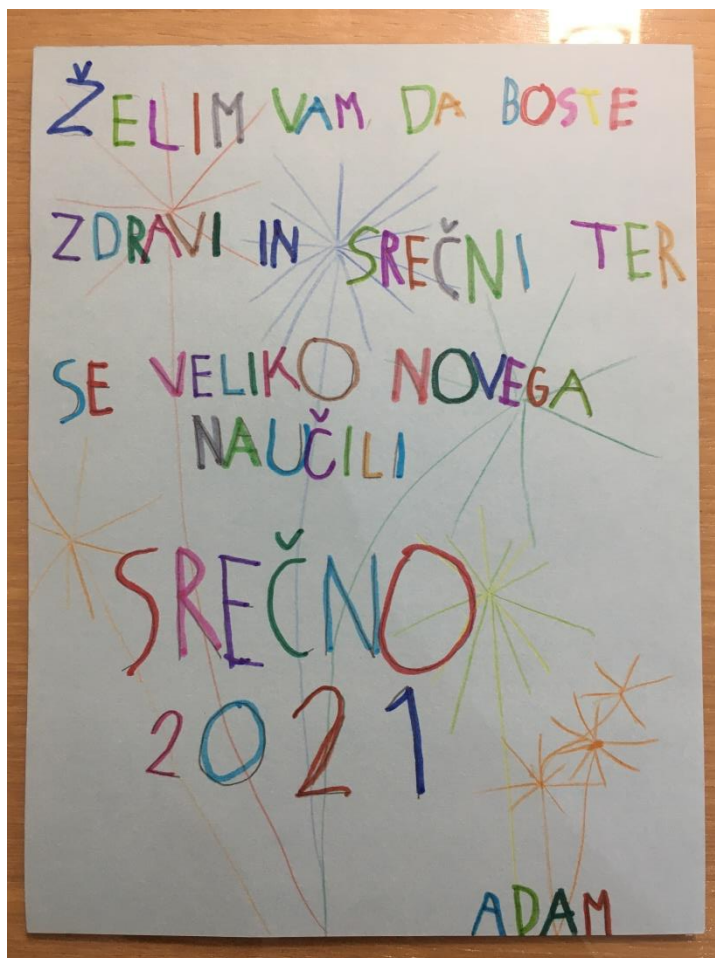 ŽELIM VAM DA BOSTE
ZDRAVI IN SREČNI TER
SE VELIKO NOVEGA
NAUČILI
SREČNO
2021
ADAM